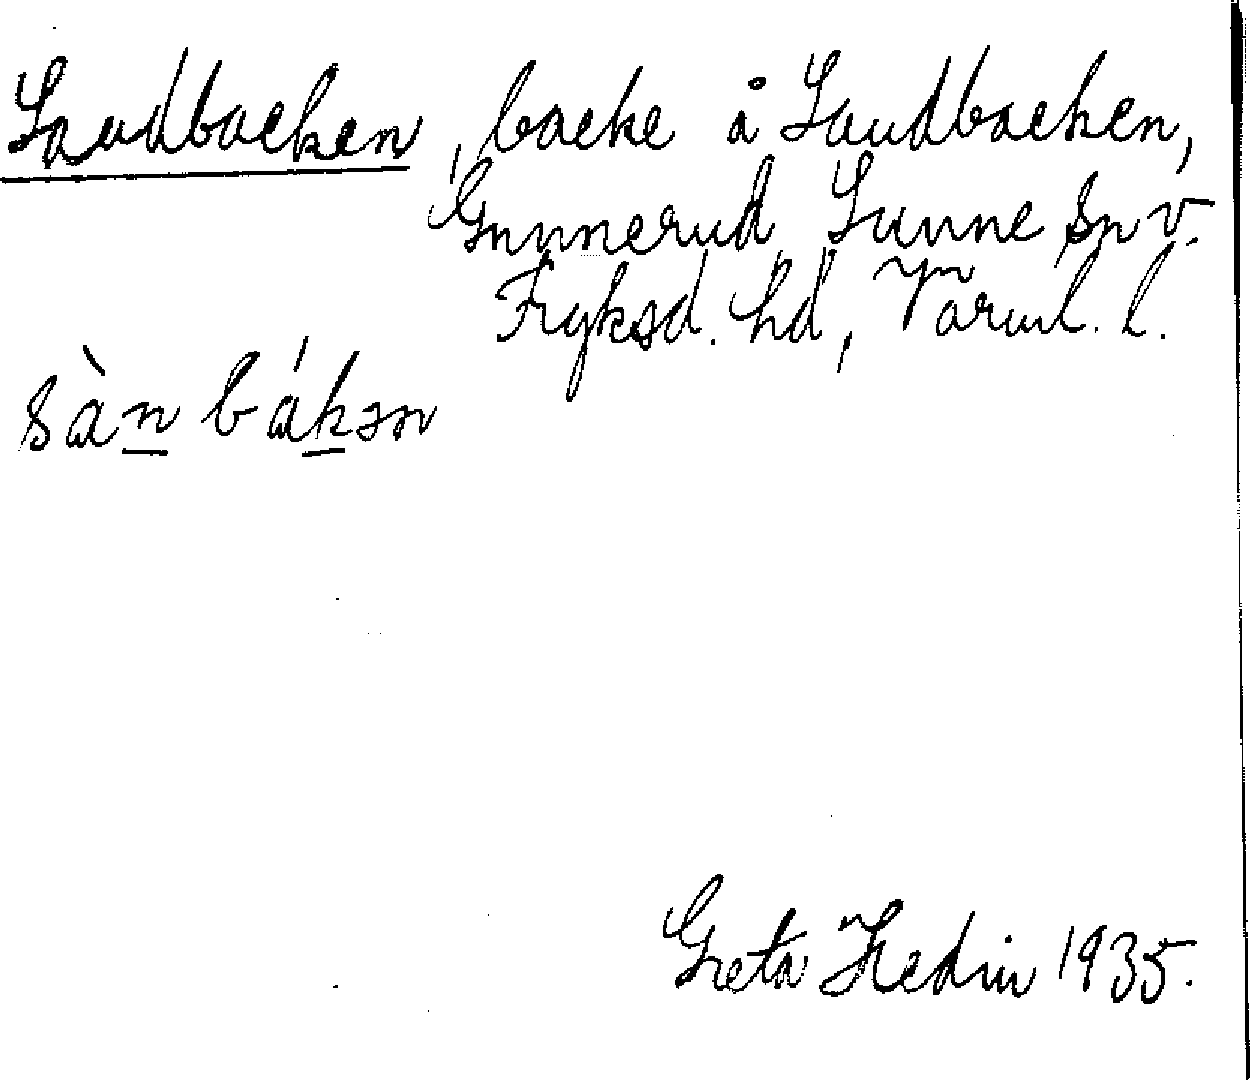 Sandbacken, backe å Sandbacken,
Gunnerud, Sunne sn v.
Fryksd. hd, Värml. l.
sàn bákən
Greta Hedin 1935.